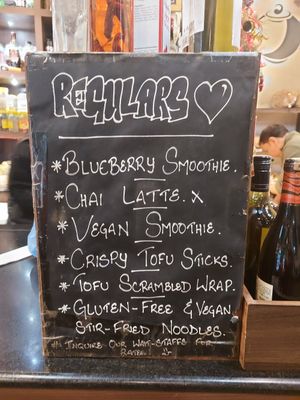 REGULARS
* BLUEBERRY SMOOTHIE.
* CHAI LATTE. x
* VEGAN SMOOTHIE.
* CRISPY TOFU STICKS.
* TOFU SCRAMBLED WRAP.
* GLUTEN-FREE & VEGAN
STIR-FRIED NOODLES.
INQUIRE OUR WAIT-STAFFS FOR
RATES.